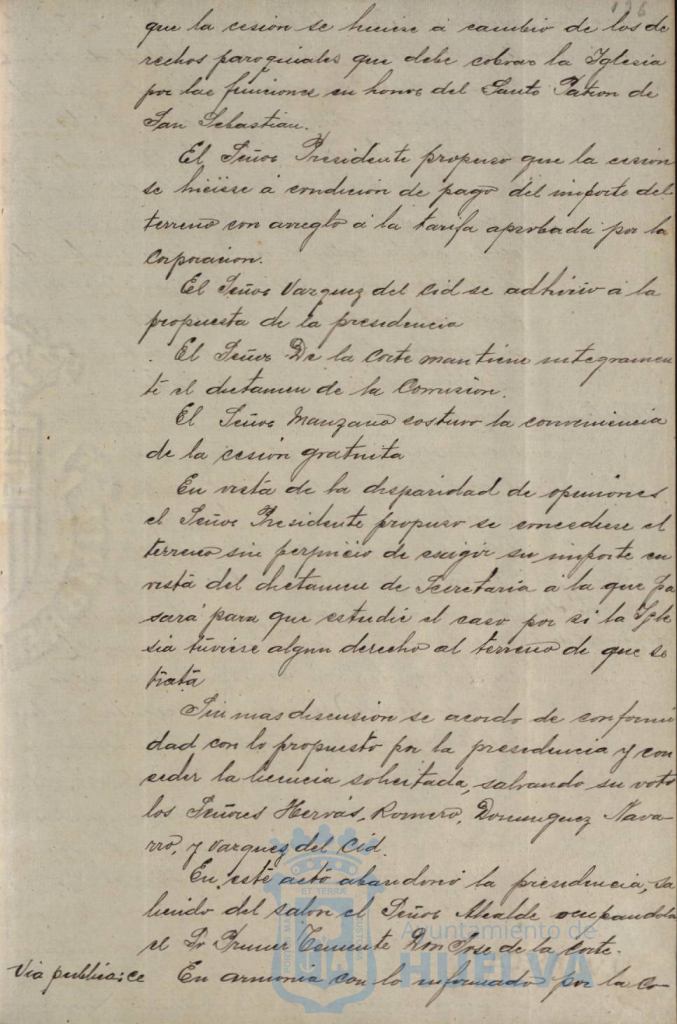 136
que la cesión se hiciese á cambio de los de
rechos paroquiales que debe cobrar la Iglesia
por las funciones en honor del Santo Patron de
San Sebastian.
El Señor Presidente propuso que la cesión
se hiciese á condición de pago del importe del
terreno con arreglo á la tarifa aprobada por la
Corporacion.
El Señor Vazquez del Cid se adhirió á la
propuesta de la presidencia
El Señor De la Corte mantiene integramen
te el dictamen de la Comision.
El Señor Manzano sostuvo la conveniencia
de la cesión gratuita
En vista de la disparidad de opiniones
el Señor Presidente propuso se concediere el
terreno sin perjuicio de exigir su importe en
vista del dictamen de Secretaria á la que pa
sará para que estudie el caso por si la Igle
sia tuviese algun derecho al terreno de que se
trata
Sin mas discusión se acordo de conformi
dad con lo propuesto por la presidencia y con
ceder la licencia solicitada, salvando su voto
los Señores Hervás, Romero, Dominguez Nava-
rro, y Vazquez del Cid.
En este acto abandonó la presidencia, sa
liendo del salon el Señor Alcalde ocupandola
el Sr Primer Teniente Don Jose de la Corte.
Via publica: ce En armonia con lo informado por la Co-
Ayuntamiento de
HUELVA